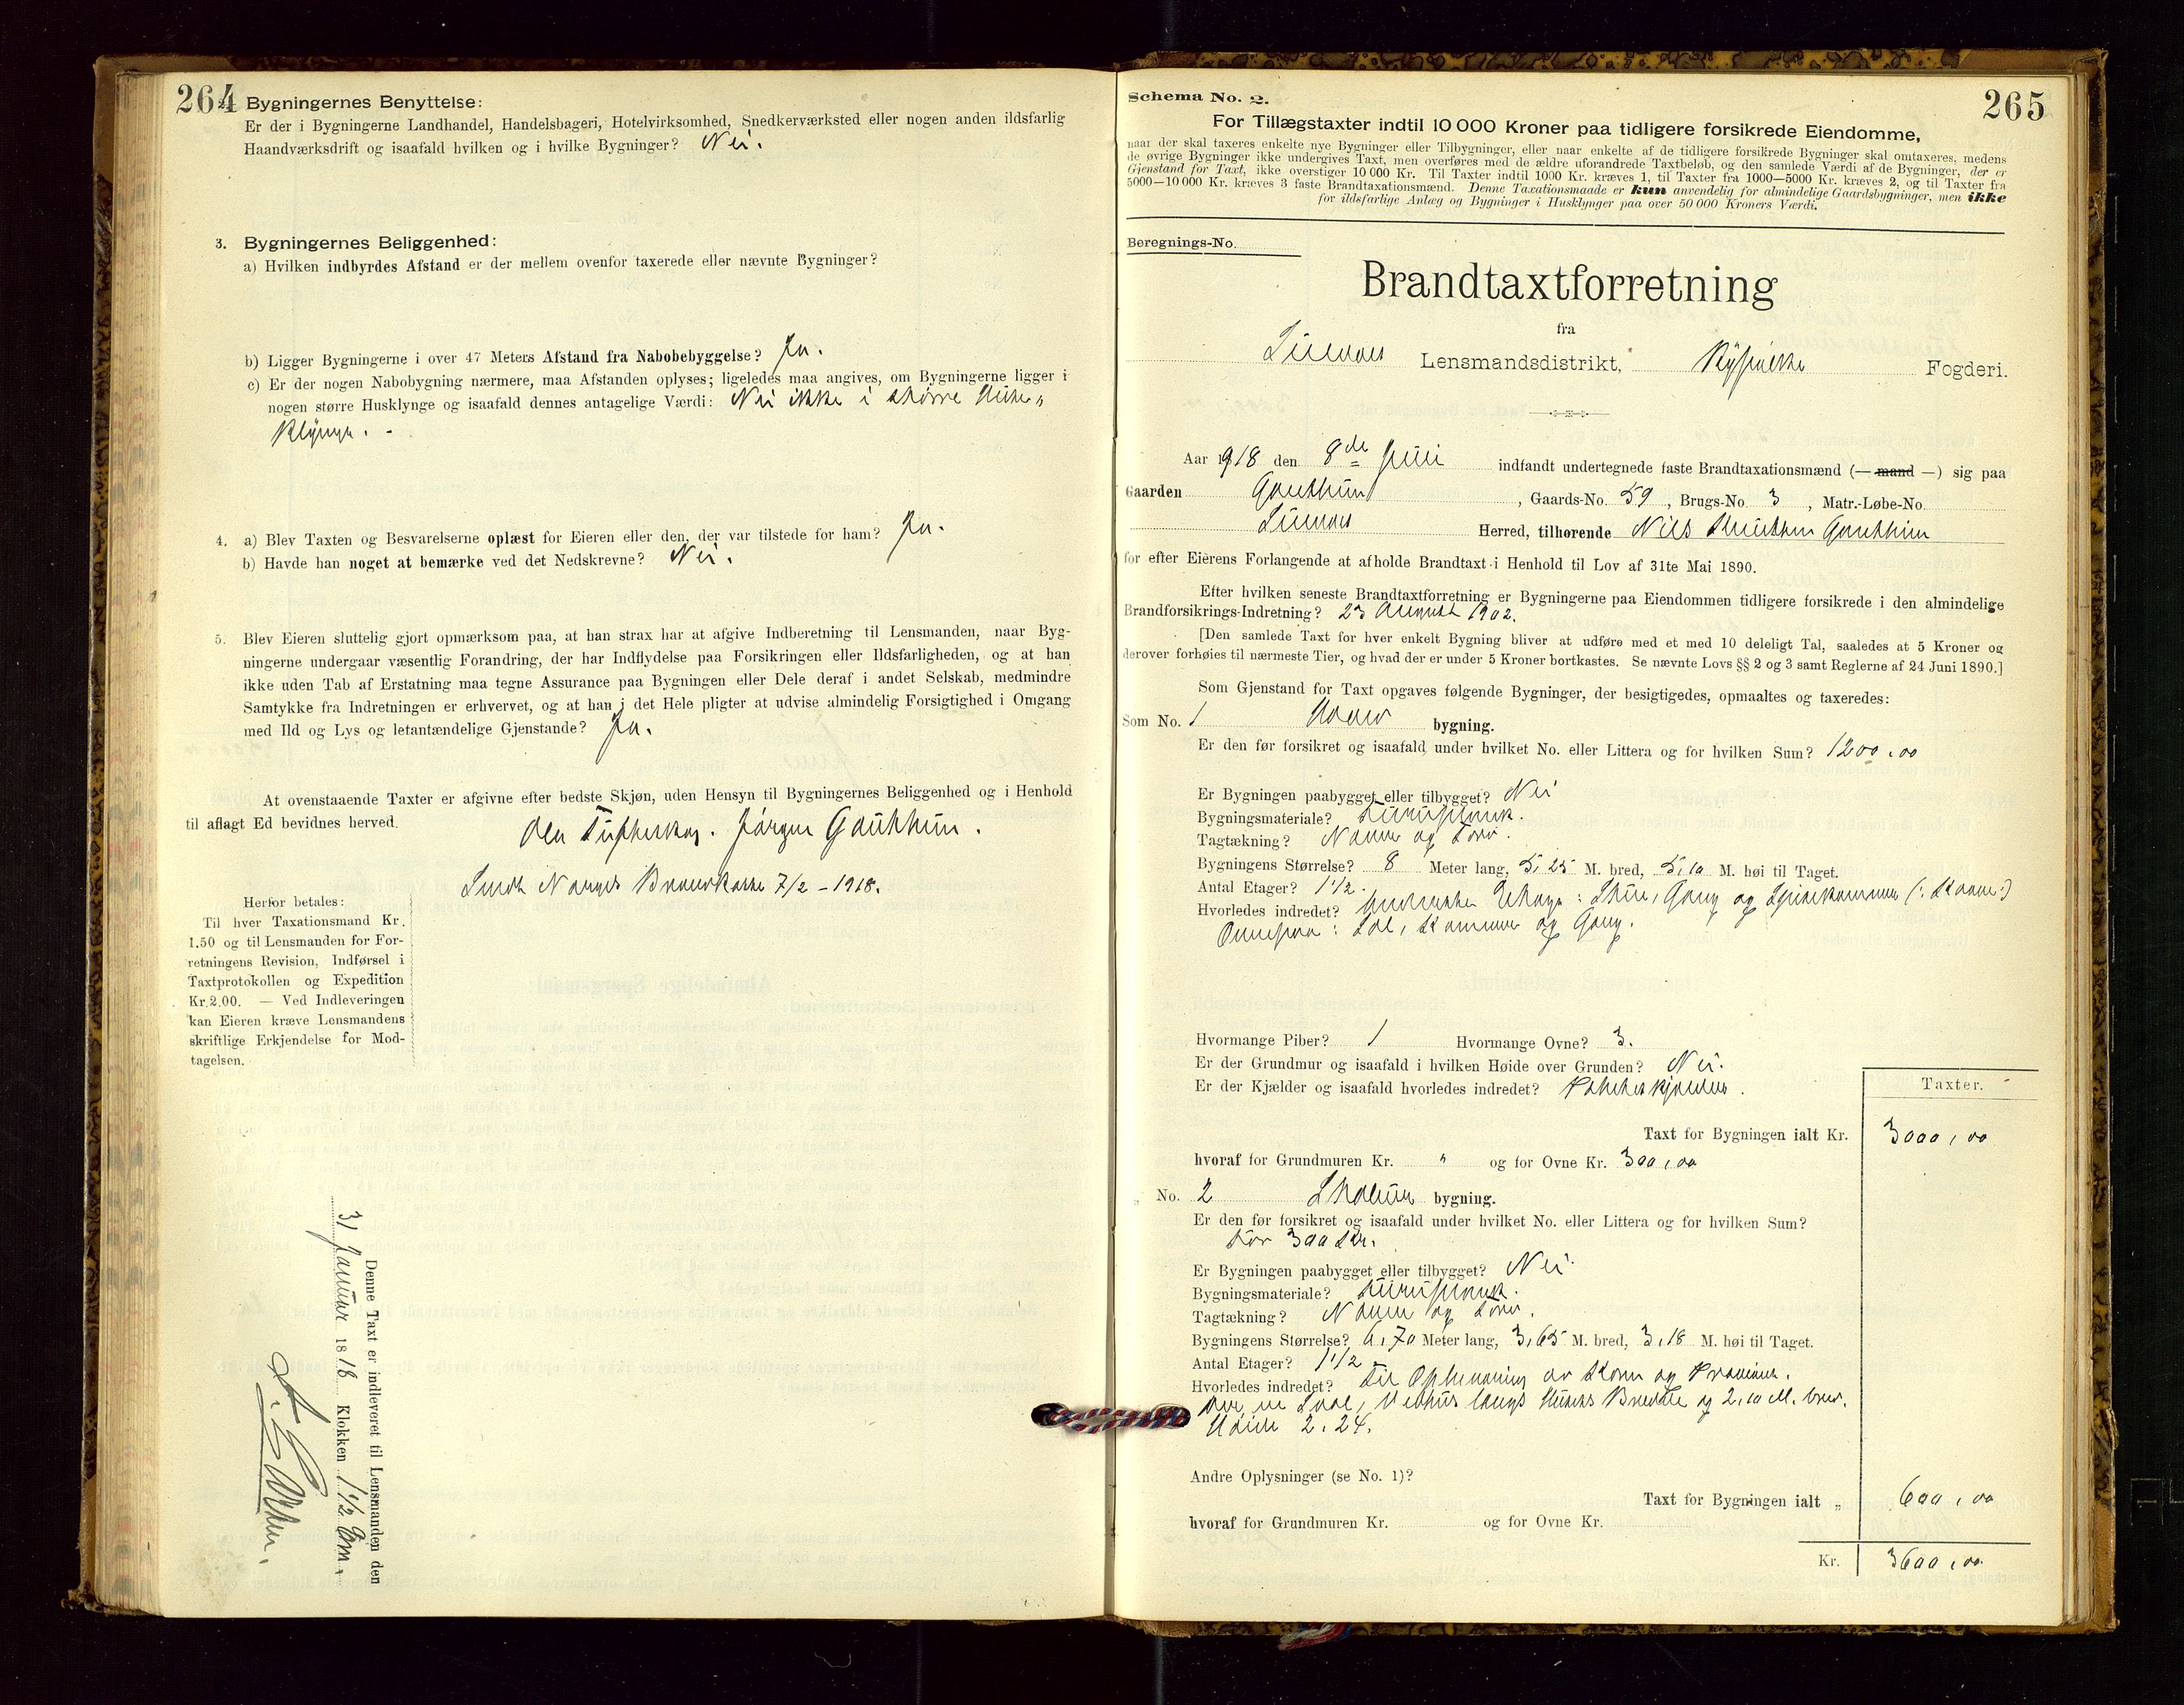 264
Bygningernes Benyttelse:
Er der i Bygningerne Landhandel, Handelsbageri, Hotelvirksomhed, Snedkerværksted eller nogen anden ildsfarlig
Haandværksdrift og isaafald hvilken og i hvilke Bygninger? Nei.
3. Bygningernes Beliggenhed:
a) Hvilken indbyrdes Afstand er der mellem ovenfor taxerede eller nævnte Bygninger?
b) Ligger Bygningerne i over 47 Meters Afstand fra Nabobebyggelse? Ja.
c) Er der nogen Nabobygning nærmere, maa Afstanden oplyses; ligeledes maa angives, om Bygningerne ligger i
nogen større Husklynge og isaafald dennes antagelige Værdi: Nei ikke i større Huse„
klynge. -
4. a) Blev Taxten og Besvarelserne oplæst for Eieren eller den, der var tilstede for ham? Ja.
b) Havde han noget at bemærke ved det Nedskrevne? Nei.
5. Blev Eieren sluttelig gjort opmærksom paa, at han strax har at afgive Indberetning til Lensmanden, naar Byg-
ningerne undergaar væsentlig Forandring, der har Indflydelse paa Forsikringen eller Ildsfarligheden, og at han
ikke uden Tab af Erstatning maa tegne Assurance paa Bygningen eller Dele deraf i andet Selskab, medmindre
Samtykke fra Indretningen er erhvervet, og at han i det Hele pligter at udvise almindelig Forsigtighed i Omgang
med Ild og Lys og letantændelige Gjenstande? Ja.
At ovenstaaende Taxter er afgivne efter bedste Skjøn, uden Hensyn til Bygningernes Beliggenhed og i Henhold
til aflagt Ed bevidnes herved.
Ola Jørgen Gauthun.
Sendt Norges Brandkasse 7/2 - 1918.
Herfor betales:
Til hver Taxationsmand Kr.
1.50 og til Lensmanden for For-
retningens Revision, Indførsel i
Taxtprotokollen og Expedition
Kr. 2.00. — Ved Indleveringen
kan Eieren kræve Lensmandens
skriftlige Erkjendelse for Mod-
tagelsen.
Denne Taxt er indleveret til Lensmanden den
31 Januar 1818 Klokken 1 1/2 Em.
Schema No. 2.
265
For Tillægstaxter indtil 10 000 Kroner paa tidligere forsikrede Eiendomme,
naar der skal taxeres enkelte nye Bygninger eller Tilbygninger, eller naar enkelte af de tidligere forsikrede Bygninger skal omtaxeres, medens
de øvrige Bygninger ikke undergives Taxt, men overføres med de ældre uforandrede Taxtbeløb, og den samlede Værdi af de Bygninger, der er
Gjenstand for Taxt, ikke overstiger 10 000 Kr. Til Taxter indtil 1000 Kr. kræves 1, til Taxter fra 1000—5000 Kr. kræves 2, og til Taxter fra
5000—10 000 Kr. kræves 3 faste Brandtaxationsmænd. Denne Taxationsmaade er kun anvendelig for almindelige Gaardsbygninger, men ikke
for ildsfarlige Anlæg og Bygninger i Husklynger paa over 50 000 Kroners Værdi.
Beregnings-No.
Brandtaxtforretning
fra
Lensmandsdistrikt, Ryfylke Fogderi.
Aar 1918 den 8de Juni indfandt undertegnede faste Brandtaxationsmænd (— mand —) sig paa
Gaarden Gauthun, Gaards-No. 59, Brugs-No. 3, Matr.-Løbe-No.
Herred, tilhørende Nils Knutsen Gauthun
for efter Eierens Forlangende at afholde Brandtaxt i Henhold til Lov af 31te Mai 1890.
Efter hvilken seneste Brandtaxtforretning er Bygningerne paa Eiendommen tidligere forsikrede i den almindelige
Brandforsikrings-Indretning? 23 August 1902.
[Den samlede Taxt for hver enkelt Bygning bliver at udføre med et med 10 deleligt Tal, saaledes at 5 Kroner og
derover forhøies til nærmeste Tier, og hvad der er under 5 Kroner bortkastes. Se nævnte Lovs §§ 2 og 3 samt Reglerne af 24 Juni 1890.]
Som Gjenstand for Taxt opgaves følgende Bygninger, der besigtigedes, opmaaltes og taxeredes:
Som No. 1 bygning.
Er den før forsikret og isaafald under hvilket No. eller Littera og for hvilken Sum? 1200,00
Er Bygningen paabygget eller tilbygget? Nei
Bygningsmateriale?
Tagtækning? Næver og Torv.
Bygningens Størrelse? 8 Meter lang, 5,25 M. bred, 5,10 M. høi til Taget.
Antal Etager? 1 1/2.
Hvorledes indredet? Underste Etage: Stue, Gang og Spisekammer (: Kove:)
Ovenpaa: Sal, Kammer og Gang.
Hvormange Piber? 1 Hvormange Ovne? 3.
Er der Grundmur og isaafald i hvilken Høide over Grunden? Nei.
Er der Kjælder og isaafald hvorledes indredet? Potetkjælder.
Taxter.
Taxt for Bygningen ialt Kr. 3000,00
hvoraf for Grundmuren Kr. „ og for Ovne Kr. 300,00
„ No. 2 Stabur bygning.
Er den før forsikret og isaafald under hvilket No. eller Littera og for hvilken Sum?
for 300 Kr.
Er Bygningen paabygget eller tilbygget? Nei.
Bygningsmateriale?
Tagtækning? Næver og Torv.
Bygningens Størrelse? 6,70 Meter lang, 3,65 M. bred, 3,18 M. høi til Taget.
Antal Etager? 1 1/2
Hvorledes indredet? Til Opbevaring av Korn og Proviant.
Vedhus langs Husets Bredde og 2,10 M. bred.
Høide 2,24.
Andre Oplysninger (se No. 1)?
Taxt for Bygningen ialt „ 600,00
hvoraf for Grundmuren Kr. og for Ovne Kr.
Kr. 3600,00